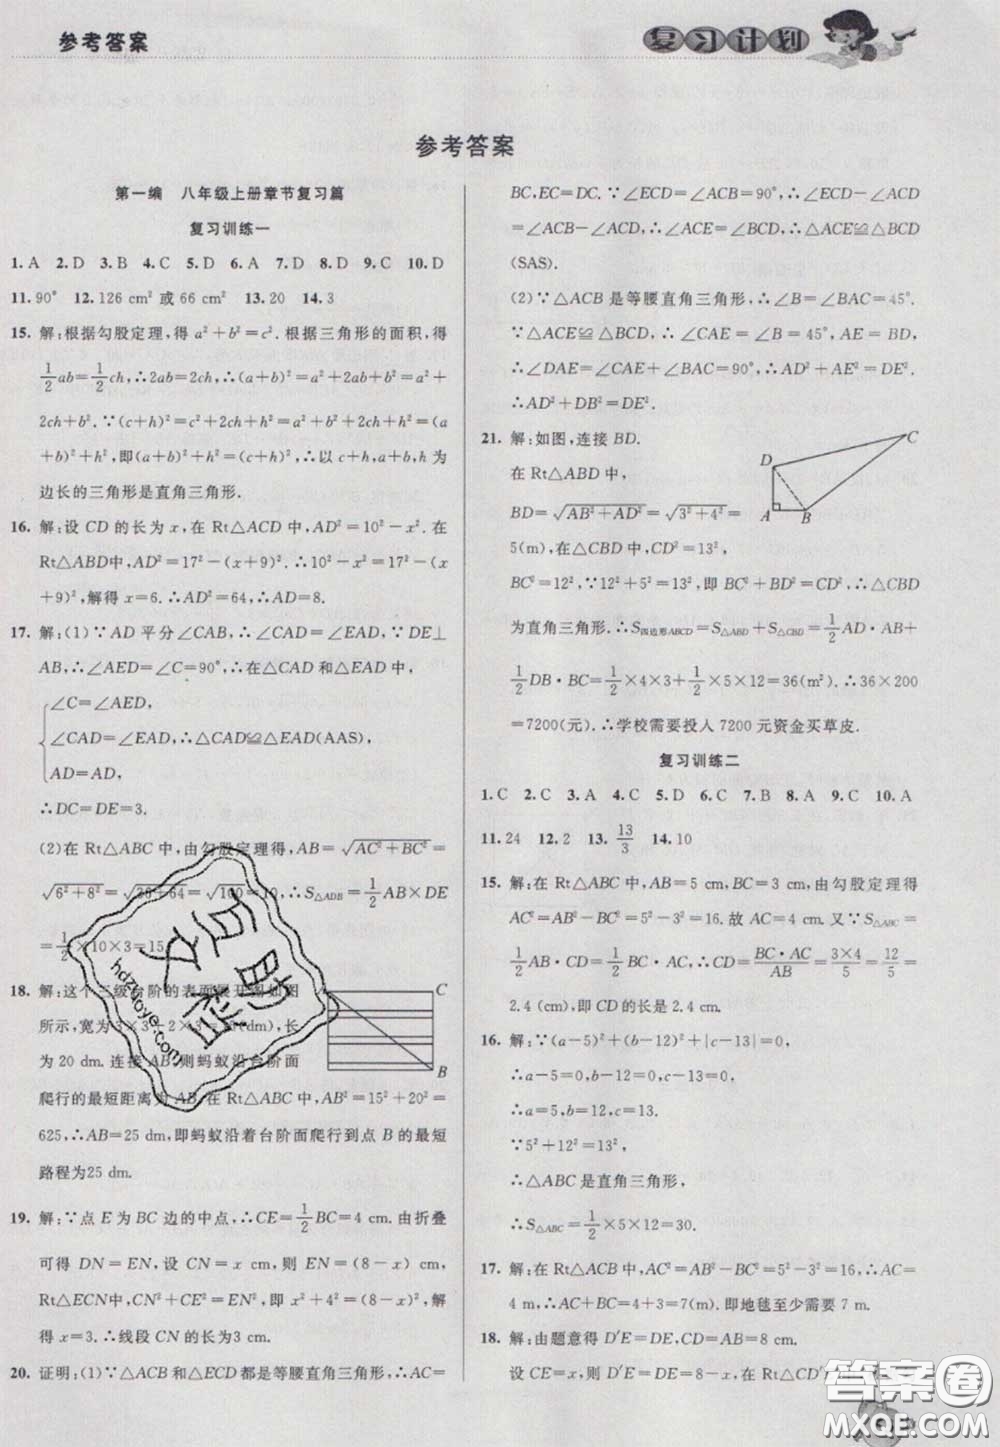 参考答案
复习计划
参考答案
第一编 八年级上册章节复习篇
复习训练一
1.A 2.D 3.B 4.C 5.D 6.A 7.D 8.D 9.C 10.D
11.90° 12.126 cm² 或 66 cm² 13.20 14.3
15. 解:根据勾股定理,得 a²+b²=c². 根据三角形的面积,得
1/2ab=1/2ch,∴2ab=2ch,∴(a+b)²=a²+2ab+b²=a²+
2ch+b². ∵(c+h)²=c²+2ch+h²=a²+b²+2ch+h²=(a
+b)²+h²,即(a+b)²+h²=(c+h)²,∴以 c+h,a+b,h 为
边长的三角形是直角三角形.
16. 解:设 CD 的长为 x,在 Rt△ACD 中,AD²=10²-x². 在
Rt△ABD中,AD²=17²-(x+9)². ∴10²-x²=17²-(x
+9)²,解得 x=6. ∴AD²=64,∴AD=8.
17. 解:(1)∵AD 平分∠CAB,∴∠CAD=∠EAD. ∵DE⊥
AB,∴∠AED=∠C=90°,∴在△CAD 和△EAD 中,
∠C=∠AED,
∠CAD=∠EAD,∴△CAD≌△EAD(AAS),
AD=AD,
∴DC=DE=3.
(2)在 Rt△ABC 中,由勾股定理得,AB=√(AC²+BC²)=
√(6²+8²)=√(36+64)=√100=10,∴S△ADB=1/2AB×DE
=1/2×10×3=15.
18. 解:这个三级台阶的表面展开图如图
所示,宽为 3×3+2×3=15(dm),长
为 20 dm. 连接 AB,则蚂蚁沿台阶面
爬行的最短距离为 AB. 在 Rt△ABC 中,AB²=15²+20²=
625,∴AB=25 dm,即蚂蚁沿着台阶面爬行到点 B 的最短
路程为25 dm.
C
B
19. 解:∵点 E 为 BC 边的中点,∴CE=1/2BC=4 cm. 由折叠
可得 DN=EN,设 CN=x cm,则 EN=(8-x) cm. 在
Rt△ECN中,CN²+CE²=EN²,即 x²+4²=(8-x)²,解
得 x=3. ∴线段 CN 的长为 3 cm.
20. 证明:(1)∵△ACB 和△ECD 都是等腰直角三角形,∴AC=
BC,EC=DC. ∵∠ECD=∠ACB=90°,∴∠ECD-
∠ACD=∠ACB-∠ACD,∴∠ACE=∠BCD,∴△ACE≌△BCD
(SAS).
(2)∵△ACB 是等腰直角三角形,∴∠B=∠BAC=45°.
∵△ACE≌△BCD,∴∠CAE=∠B=45°,AE=BD,
∴∠DAE=∠CAE+∠BAC=90°,∴AD²+AE²=DE²,
∴AD²+DB²=DE².
21. 解:如图,连接 BD.
在 Rt△ABD 中,
BD=√(AB²+AD²)=√(3²+4²)=
5(m),在△CBD 中,CD²=13²,
D
C
A
B
BC²=12²,∵12²+5²=13²,即 BC²+BD²=CD²,∴△CBD
为直角三角形. ∴S四边形ABCD=S△ABD+S△CBD=1/2AD·AB+
1/2DB·BC=1/2×4×3+1/2×5×12=36(m²). ∴36×200
=7200(元). ∴学校需要投入 7200 元资金买草皮.
复习训练二
1.C 2.C 3.A 4.C 5.D 6.C 7.B 8.A 9.C 10.A
11.24 12.2 13.13/3 14.10
15. 解:在 Rt△ABC 中,AB=5 cm,BC=3 cm,由勾股定理得
AC²=AB²-BC²=5²-3²=16. 故 AC=4 cm. 又∵S△ABC=
1/2AB·CD=1/2BC·AC,∴CD=BC·AC/AB=3×4/5=12/5=
2.4 (cm),即 CD 的长是 2.4 cm.
16. 解:∵(a-5)²+(b-12)²+|c-13|=0,
∴a-5=0,b-12=0,c-13=0,
∴a=5,b=12,c=13.
∵5²+12²=13²,
∴△ABC 是直角三角形,
∴S△ABC=1/2×5×12=30.
17. 解:在 Rt△ACB 中,AC²=AB²-BC²=5²-3²=16,∴AC=
4 m,∴AC+BC=4+3=7(m). 即地毯至少需要 7 m.
18. 解:由题意得 D′E=DE,AD′=BC,CD=AB=8 cm.
设 CE=x,则 D′E=DE=8-x,在 Rt△CD′
答案圈
MXQE.COM
百明文库
hdzuoye.com